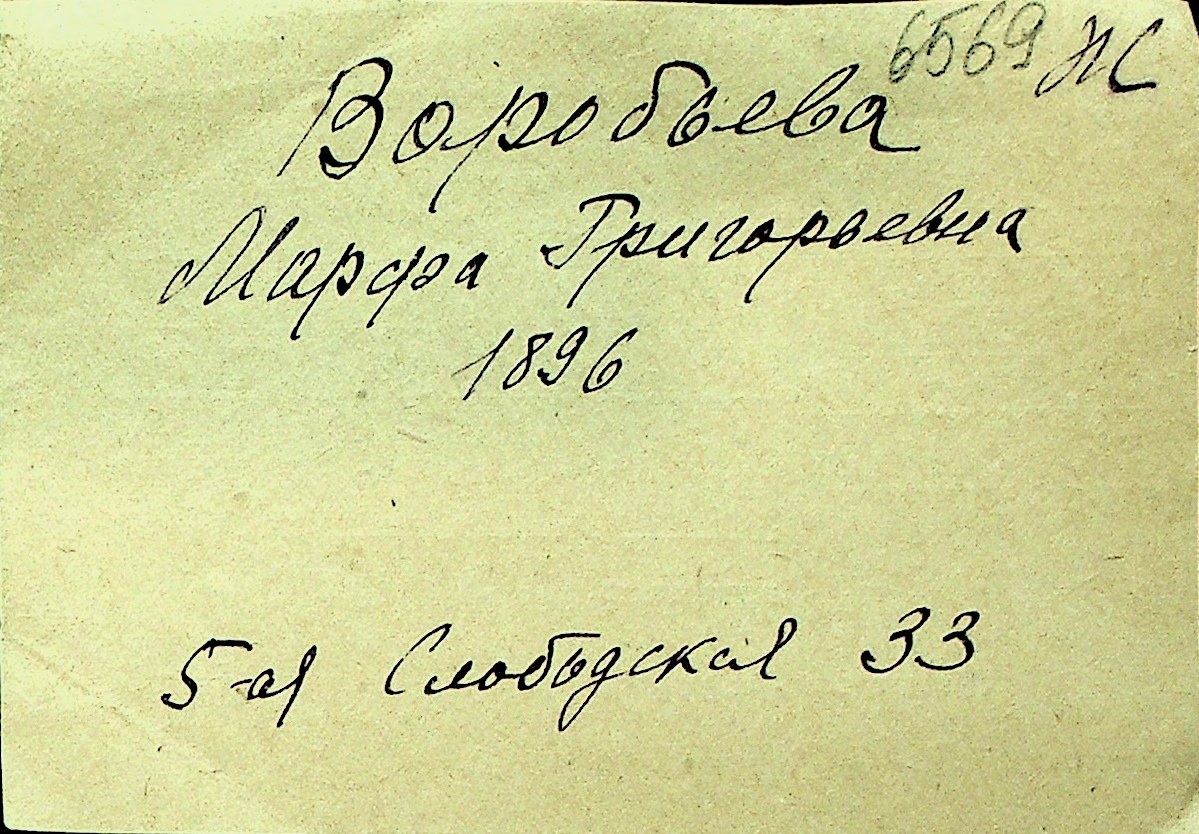 6569 НС
Воробьева
Марфа Григорьевна
1896
5-ая Слободская 33